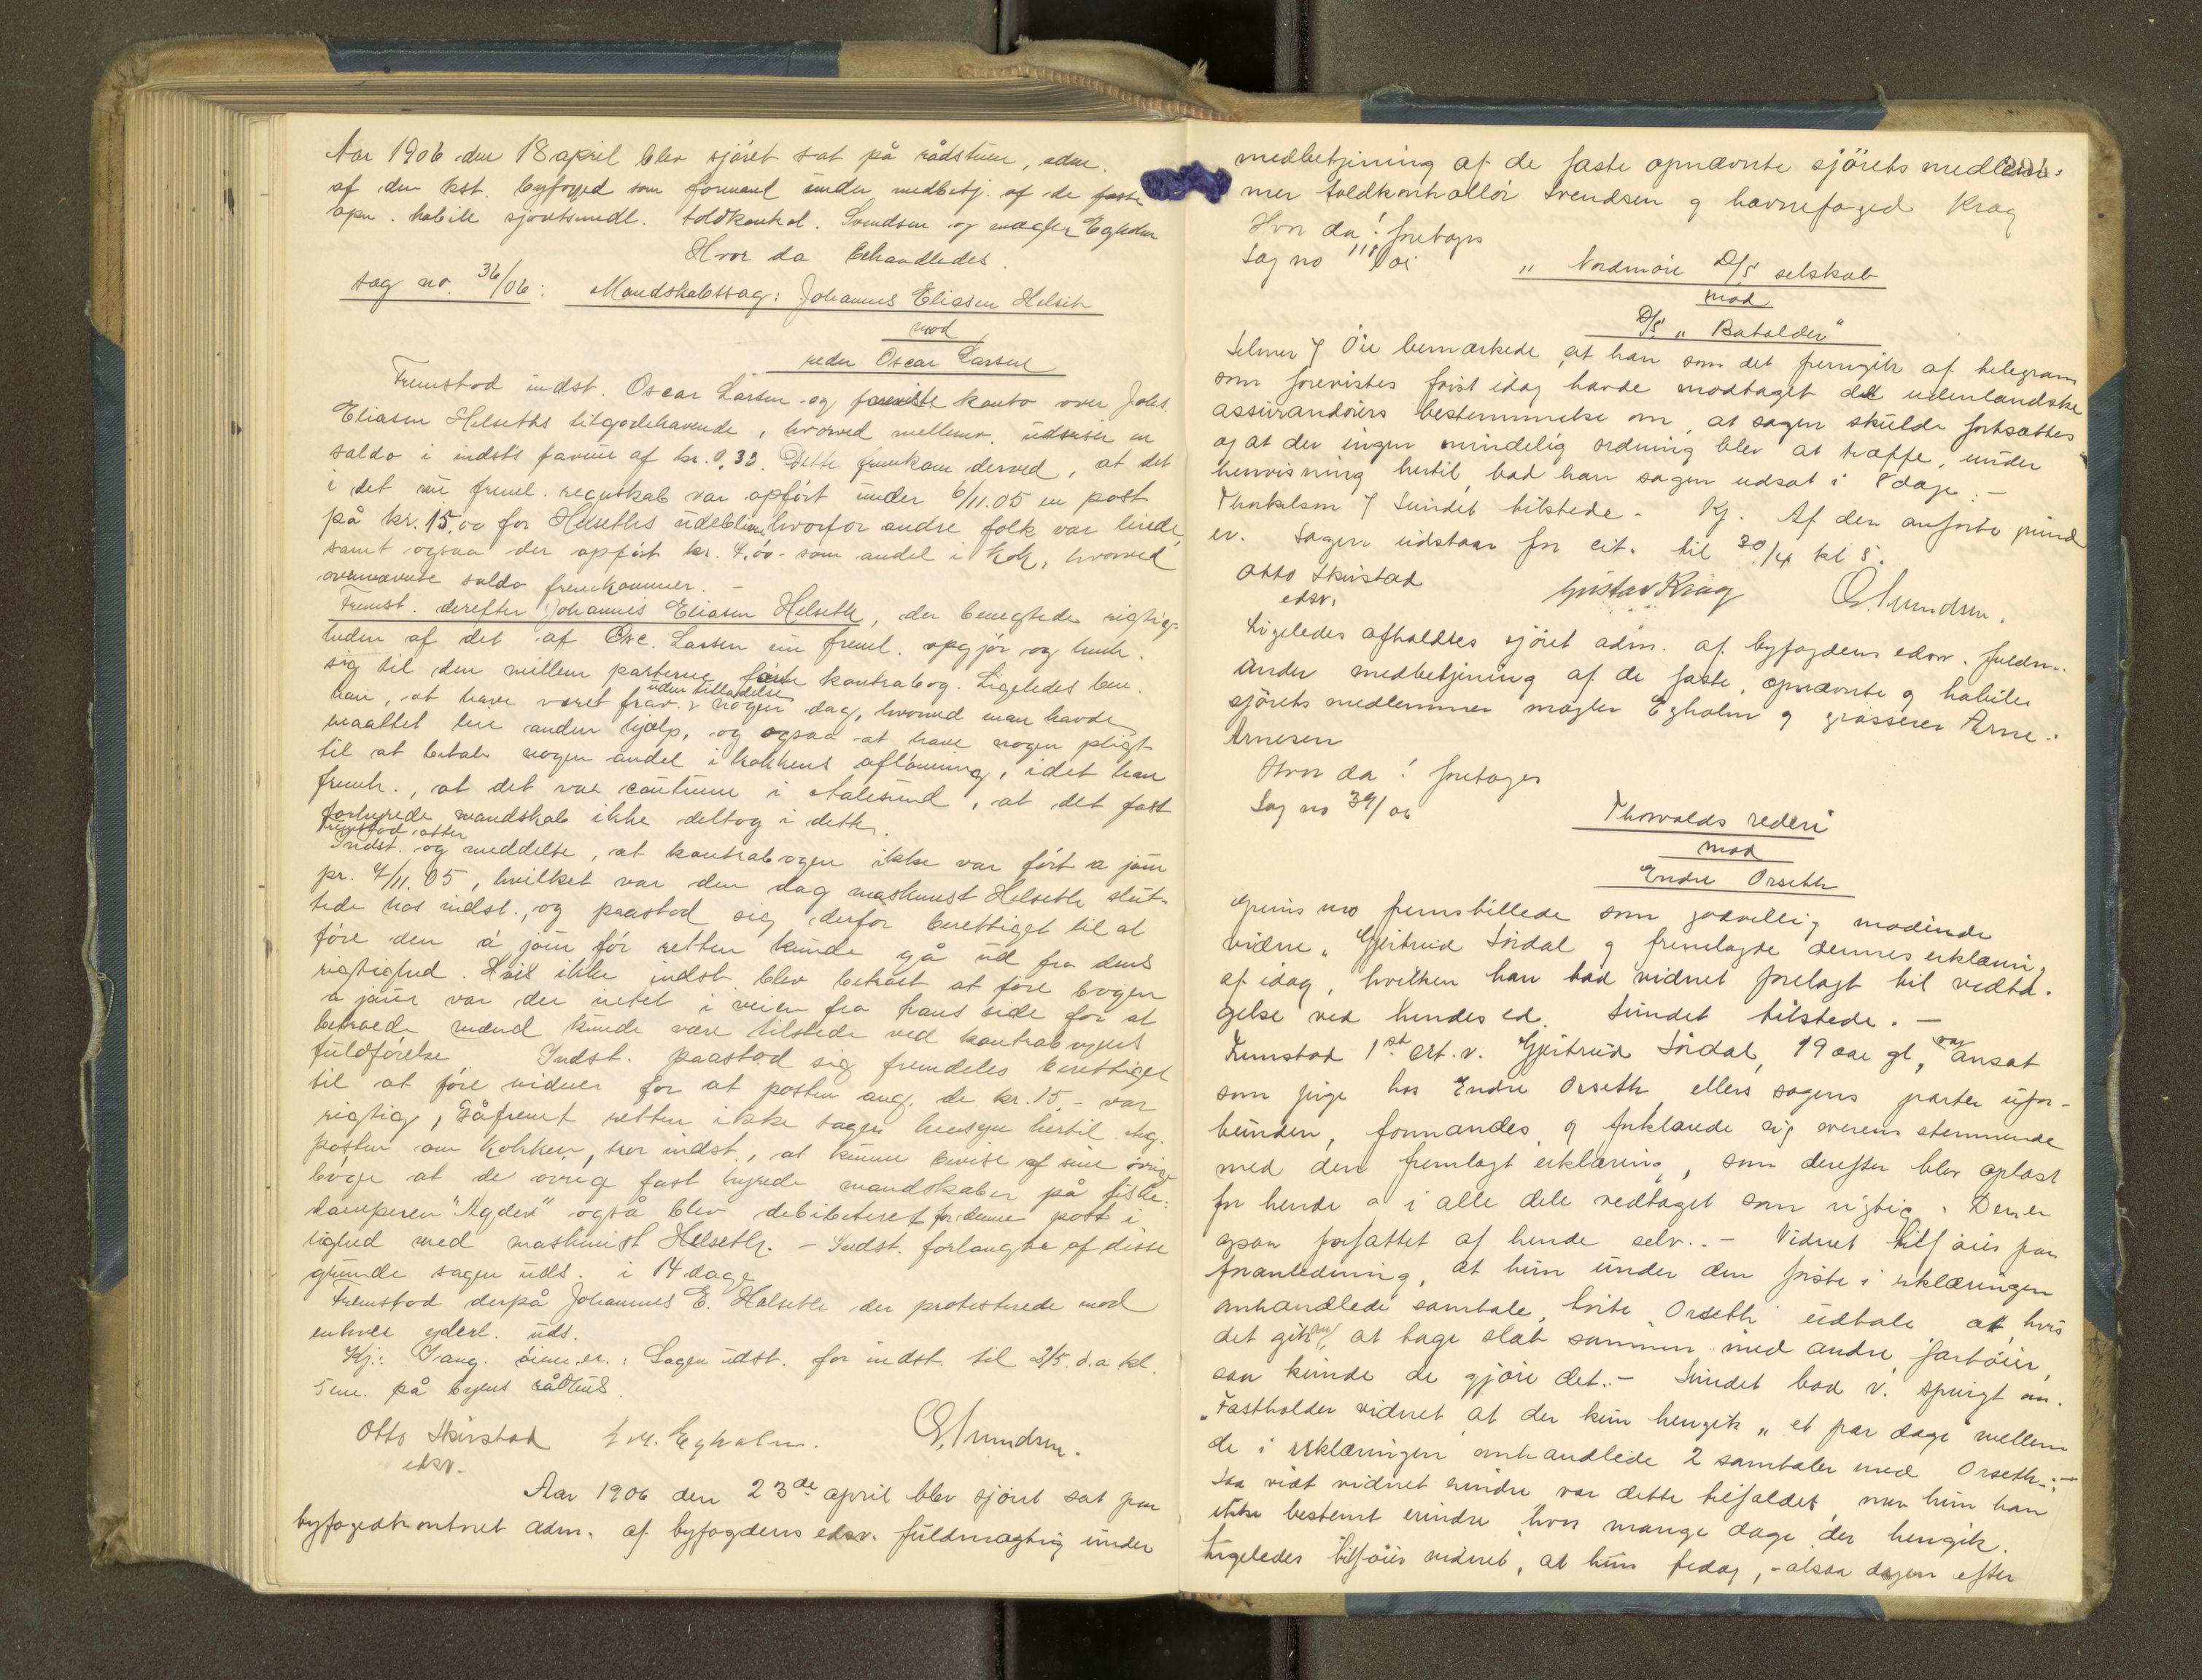 Aar 1906 den 18 april blev sjöret sat på rådstuen, adm.
af den kst. byfoged som formand under medbetj. af de faste
opn. habile sjöretsmedl. toldkontrol. Svendsen og mægler Egholm
Hvor da behandledes.
sag no. 36/06: Mandskabssag: Johannes Eliasen Helseth
mod
reder Oscar Larsen
Fremstod indst. Oscar Larsen og foreviste konto over Johs.
Eliasen Helseths tilgodehavende, hvorved mellemr. udviser en
saldo i indst's favør af kr. 0,33. Dette fremkom derved, at det
i det nu freml. regnskab var opført under 6/11.05 en post
på kr. 15,00 for Helseths udebliven hvorfor andre folk var leiede,
samt ogsaa der opført kr. 4,00 - som andel i kok, hvorved
ovennævnte saldo fremkommer. -
Fremst. derefter Johannes Eliasen Helseth, der benegtede rigtig-
heden af det af Osc. Larsen nu freml. opgjör og henh.
sig til den mellem parterne førte kontrabog. Ligeledes ben.
han, at have været frav. uden tilladelse nogen dag, hvorved man havde
maattet leie anden hjælp, og ogsaa at have nogen pligt
til at betale nogen andel i kokkens aflönning, idet han
fremh., at det var coutume i Aalesund, at det fast
forhyrede mandskab ikke deltog i dette.
Fremstod atter
Indst. og meddelte, at kontrabogen ikke var ført a jour
pr. 7/11.05, hvilket var den dag maskinist Helseth slut-
tede hos indst., og paastod sig derfor berettiget til at
före den á jour för retten kunde gå ud fra dens
rigtighed. Hvis ikke indst. blev betroet at före bogen
a jour var der intet i veien fra hans side for at
betroede mænd kunde være tilstede ved kontrabogens
fuldførelse Indst. paastod sig fremdeles berettiget
til at före vidner for at posten ang. de kr. 15,- var
rigtig, såfremt retten ikke tager hensyn hertil. Ang.
posten om kokken, tror indst., at kunne bevise af sine övrige
böger at de övrige fast hyrede mandskaber på fiske-
damperen "Agder" også blev debiteret for denne post i
lighed med maskinist Helseth. - Indst. forlangte af disse
grunde sagen uds. i 14 dage
Fremstod derpå Johannes E. Helseth der protesterede mod
enhver yderl. uds.
Kj.: Sagen udst. for indst. til 2/5. d.a kl.
5 em. på byens rådhus.
Otto Skirstad L M. Egholm. E. Svendsen.
edsv.
Aar 1906 den 23de april blev sjöret sat paa
byfogedkontoret adm. af byfogdens edsv. fuldmægtig under
medbetjening af de faste opnævnte sjörets medlem-
mer toldkontrollör Svendsen og havnefoged Krag
Hvor da! foretoges
Sag no
"Nordmöre D/S selskab
mod
D/S "Batalder"
Selmer f Öie bemærkede at han som det fremgik af telegram
som forevistes först idag havde modtaget de udenlandske
assurandörers bestemmelse om, at sagen skulde fortsættes
og at der ingen mindelig ordning blev at træffe, under
henvisning hertil, bad han sagen udsat i 8 dage: -
Thorkelsen f Sundet tilstede. - Kj. Af den anförte grund
er. Sagen udstaar for cit. til 30/4 kl 5.
Otto Skirstad Gustav Krag E. Svendsen.
edsv.
Ligeledes afholdtes sjöret adm. af byfogdens edsv. fuldm.
under medbetjening af de faste, opnævnte og habile
sjörets medlemmer mægler Egholm og grosserer Arne
Arnesen
Hvor da! foretoges
Sag no 39/06
Thorvalds rederi
mod
Endre Orseth
fremstillede som godvillig mödende
vidne, Gjertrud Sördal og fremlagde dennes erklæring
af idag, hvilken han bad vidnet forelagt til vedta-
gelse ved hendes ed. Sundet tilstede. -
Fremstod 1st cit. v. Gjertrud Sördal, 19 aar gl, var ansat
som pige hos Endre Orseth, ellers sagens parter ufor-
bunden, formandes, og forklarede sig overens stemmende
med den fremlagt erklæring, som derefter blev oplæst
for hende og i alle dele vedtaget som rigtig. Den er
ogsaa forfattet af hende selv. - Vidnet tilföier paa
foranledning, at hun under den förste i erklæringen
omhandlede samtale, hörte Orseth udtale at, hvis
det gik an, at tage slæb sammen med andre fartöier,
saa kunde de gjöre det. - Sundet bad v. spurgt om.
Fastholder vidnet at der kun hengik "et par dage mellem
de i erklæringen omhandlede 2 samtaler med Orseth: -
Saa vidt vidnet erindre var dette tilfældet, men hun kan
ikke bestemt erindre hvor mange dage der hengik.
Ligeledes tilföier vidnet, at hun fredag, - altsaa dagen efter